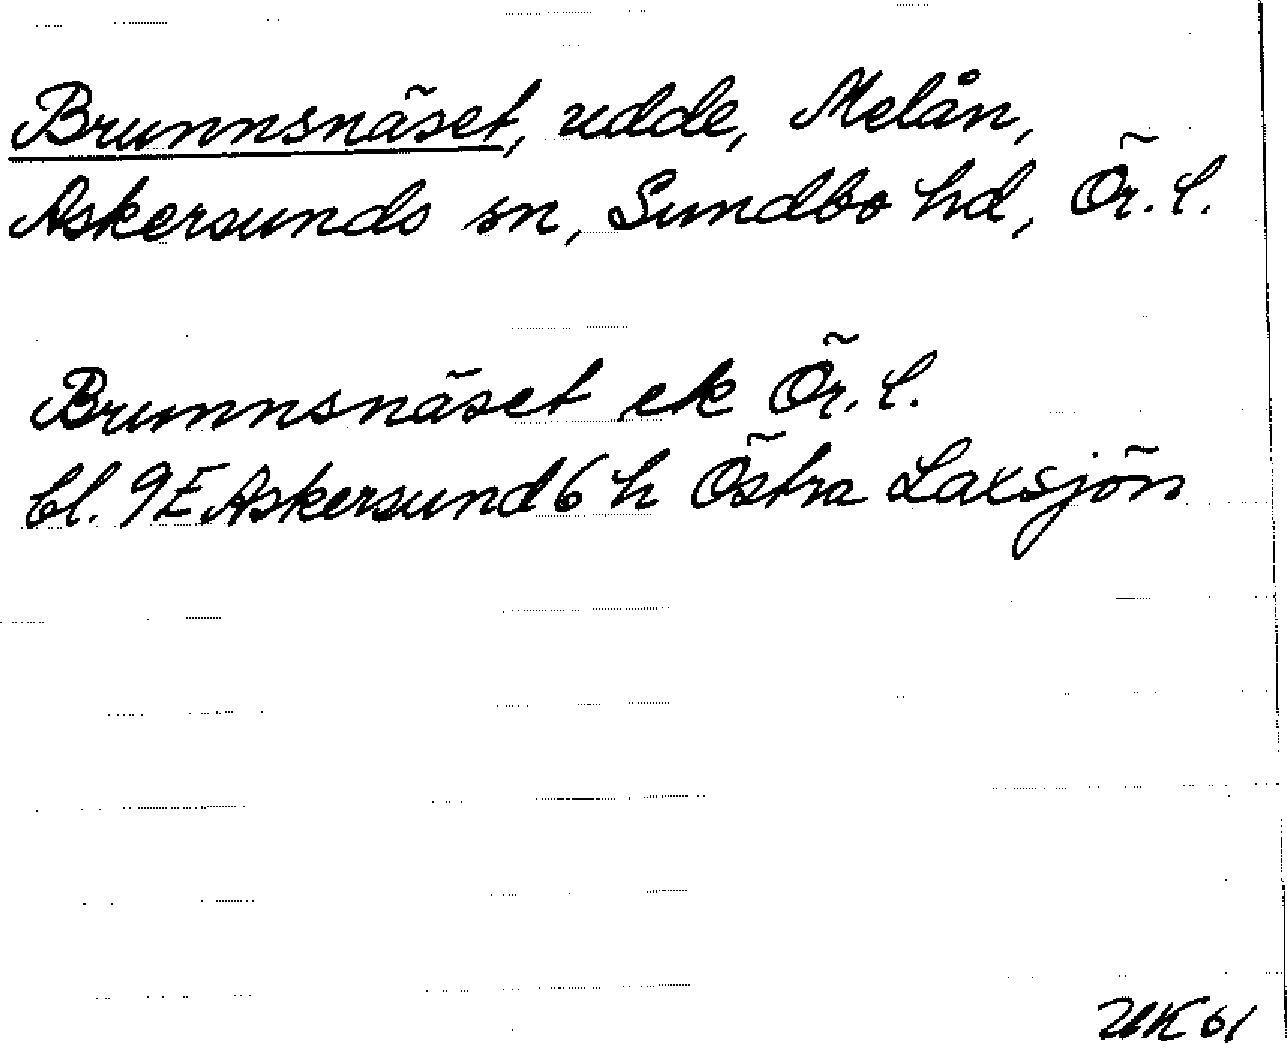 Brunnsnäset, udde, Melån,
Askersunds sn, Sundbo hd, Ör. l.
Brunnsnäset ek Ör. l.
bl. 9E Askersund 6 h Östra Laxsjön
UK 61